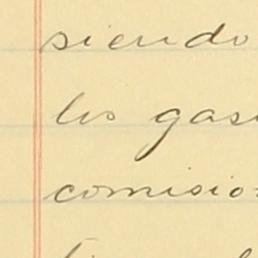 siendo
los gas
comisio